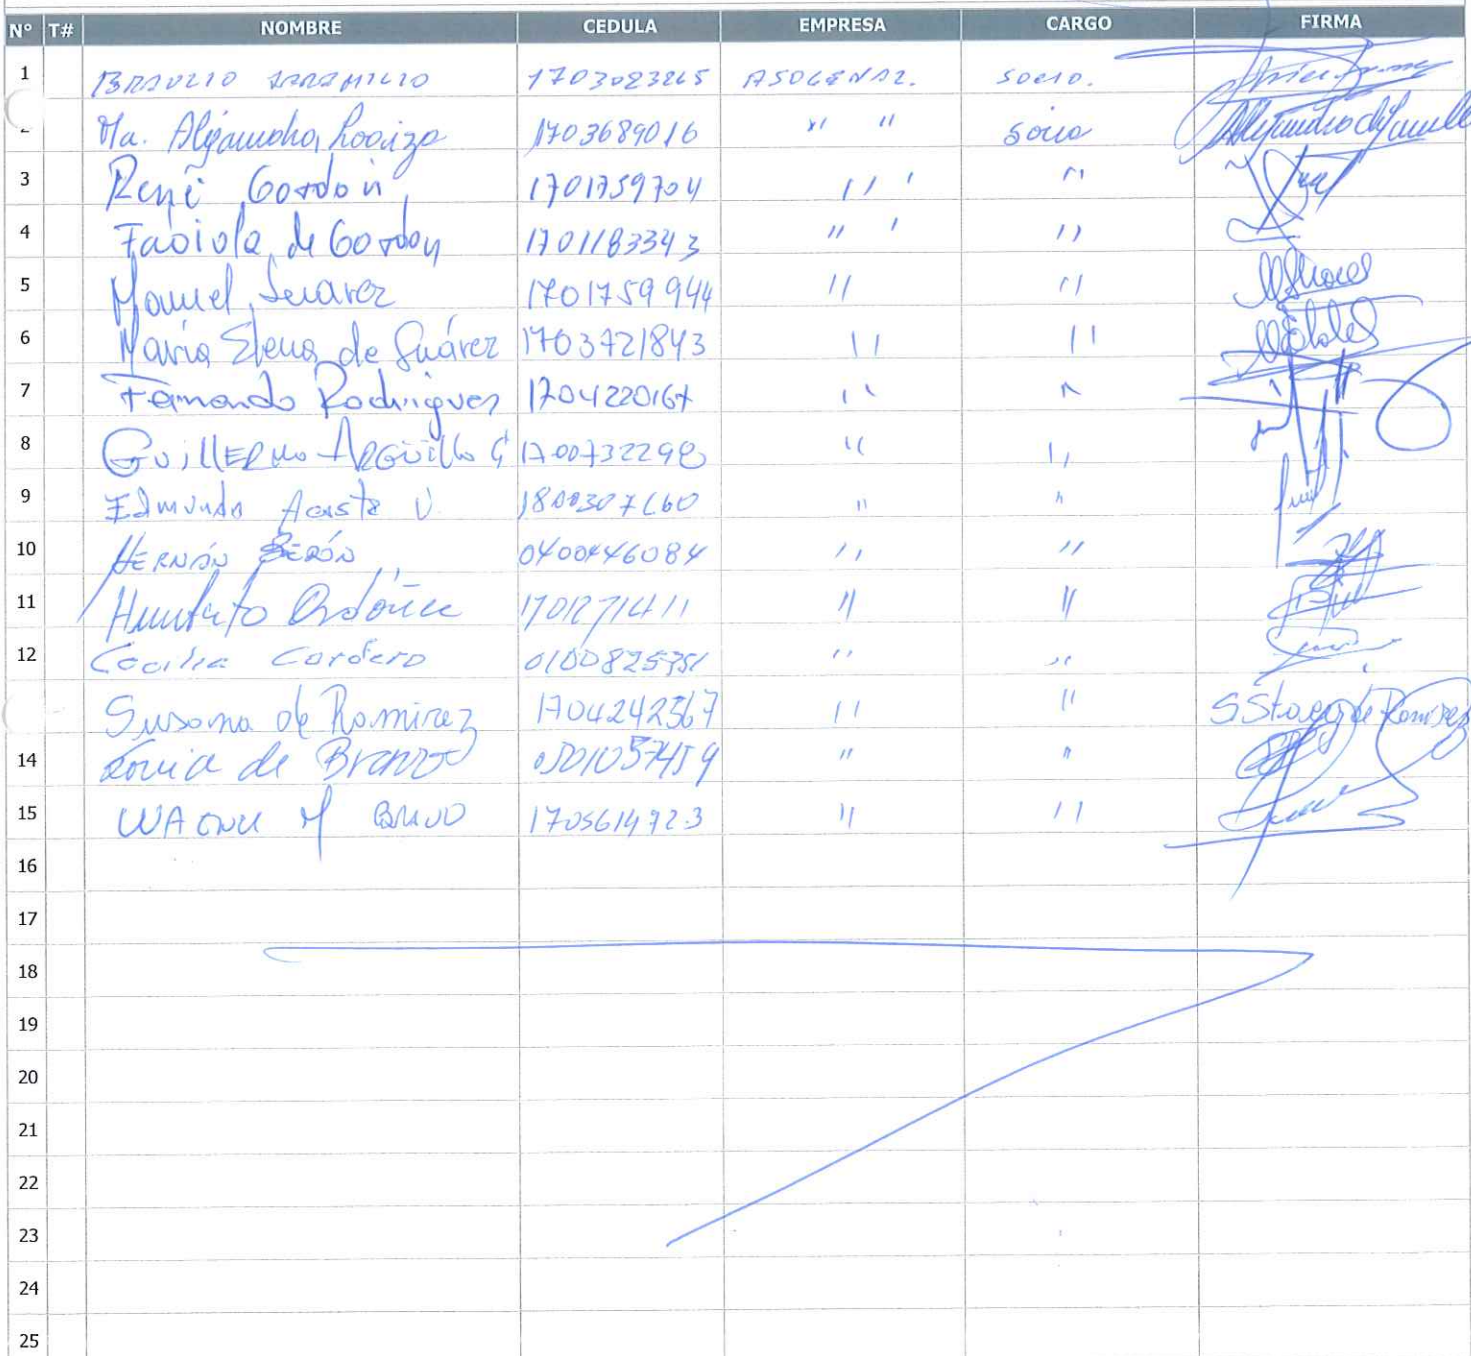 N° T# NOMBRE CEDULA EMPRESA CARGO FIRMA
1 BRAULIO JARAMILLO 1703023265 ASOGENAL. SOCIO.
Ma. Alejandra Loaiza 1703689016 " " Socia
3 René Gordón 1701759704 " ' "
4 Fabiola de Gordon 1701183343 " ' "
5 Manuel Suarez 1701759944 " "
6 María Elena de Suárez 1703721843 " "
7 Fernando Rodriguez 1704220167 " "
8 Guillermo Argüello G 1700732298 " "
9 Edmundo Acosta V. " "
10 HERNÁN 0400446084 " "
11 Humberto Ordóñez 1701271411 " "
12 Cecilia Cordero 0100825351 " "
Susana de Ramirez 1704242567 " " S S de Ramirez
14 de 0501057459 " "
15 M BRAVO 1705614923 " "
16
17
18
19
20
21
22
23
24
25